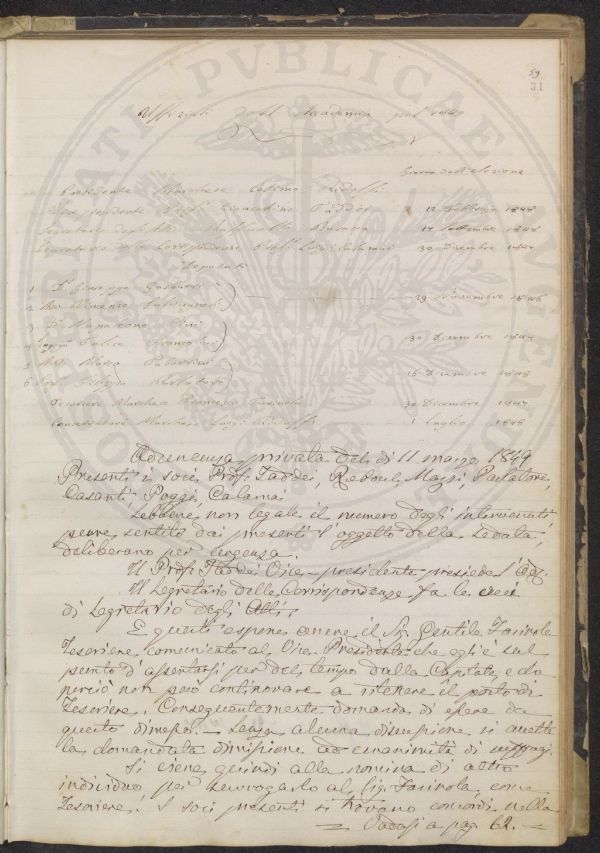 59
31
Uffiziali dell' Accademia pel 1849
Giorno dell'elezione
Presidente Marchese Cosimo Ridolfi
Vice-presidente Prof. Gioacchino Taddei 12 Febbraio 1848
Segretario degli Atti Raffaello 17 Settembre 1848
Segretario delle Corrispondenze Prof. Luigi Calamai 30 Dicembre 1847
Deputati
1 D. Giuseppe
2 Avv. Vincenzo Salvagnoli 29 Novembre 1846
3 D. Napoleone
4 Felice 30 Dicembre 1847
5 Avv.
6 16 Dicembre 1848
Tesoriere Marchese Farinola 30 Dicembre 1847
Conservatore Marchese Luigi Ridolfi 1 Luglio 1848
Adunenza privata del dì 11 marzo 1849
Presenti i soci Prof. Taddei, Mazzi, Parlatore,
Casanti, Poggi, Calamai
Sebbene non legale il numero degli intervenuti
pure, sentito dai presenti l'oggetto della Seduta,
deliberano per urgenza.
Il Prof. Taddei Vice-presidente presiede l'
Il Segretario delle Corrispondenze fa le veci
di Segretario degli Atti.
E quegli espone avere il Sig. Gentile Farinola
Tesoriere comunicato al Vice-Presidente che egli è sul
punto d'assentarsi per del tempo dalla Capitale, e da
perciò non può continovare a ritenere il posto di
Tesoriere. Conseguentemente domanda di essere da
questo dimesso. — Senza alcuna discussione si accetta
la domandata dimissione ad unanimità di suffragi.
Si viene quindi alla nomina di altro
individuo per surrogarlo al Sig. Farinola, come
Tesoriere. I soci presenti si trovano concordi nella
— Vadasi a pag. 62. —